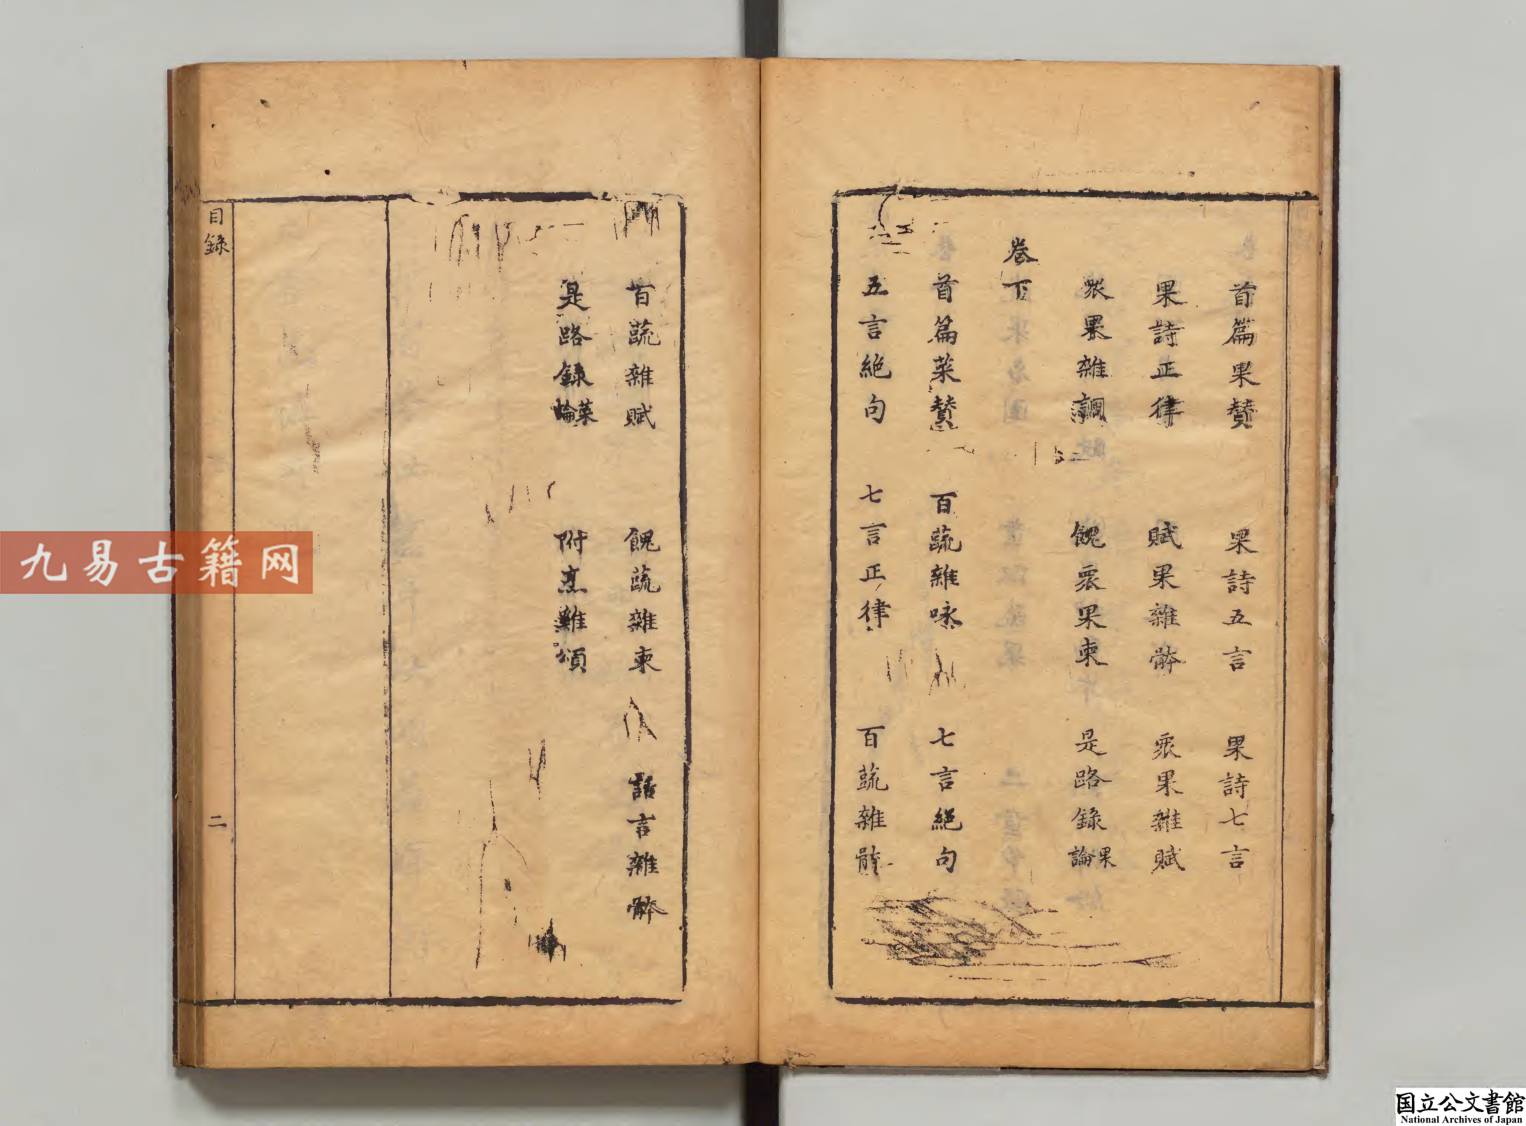 首篇果賛 果詩五言 果詩七言
果詩正律 賦果雜𩨬 衆果雜賦
衆果雜調 餽衆果柬 是路錄果論
卷下
首篇菜賛 百蔬雜咏 七言絕句
五言絕句 七言正律 百蔬雜𩨬
百蔬雜賦 餽蔬雜柬 話言雜𩨬
是路錄菜論 附烹雞頌
目錄
二
九易古籍网
国立公文書館
National Archives of Japan